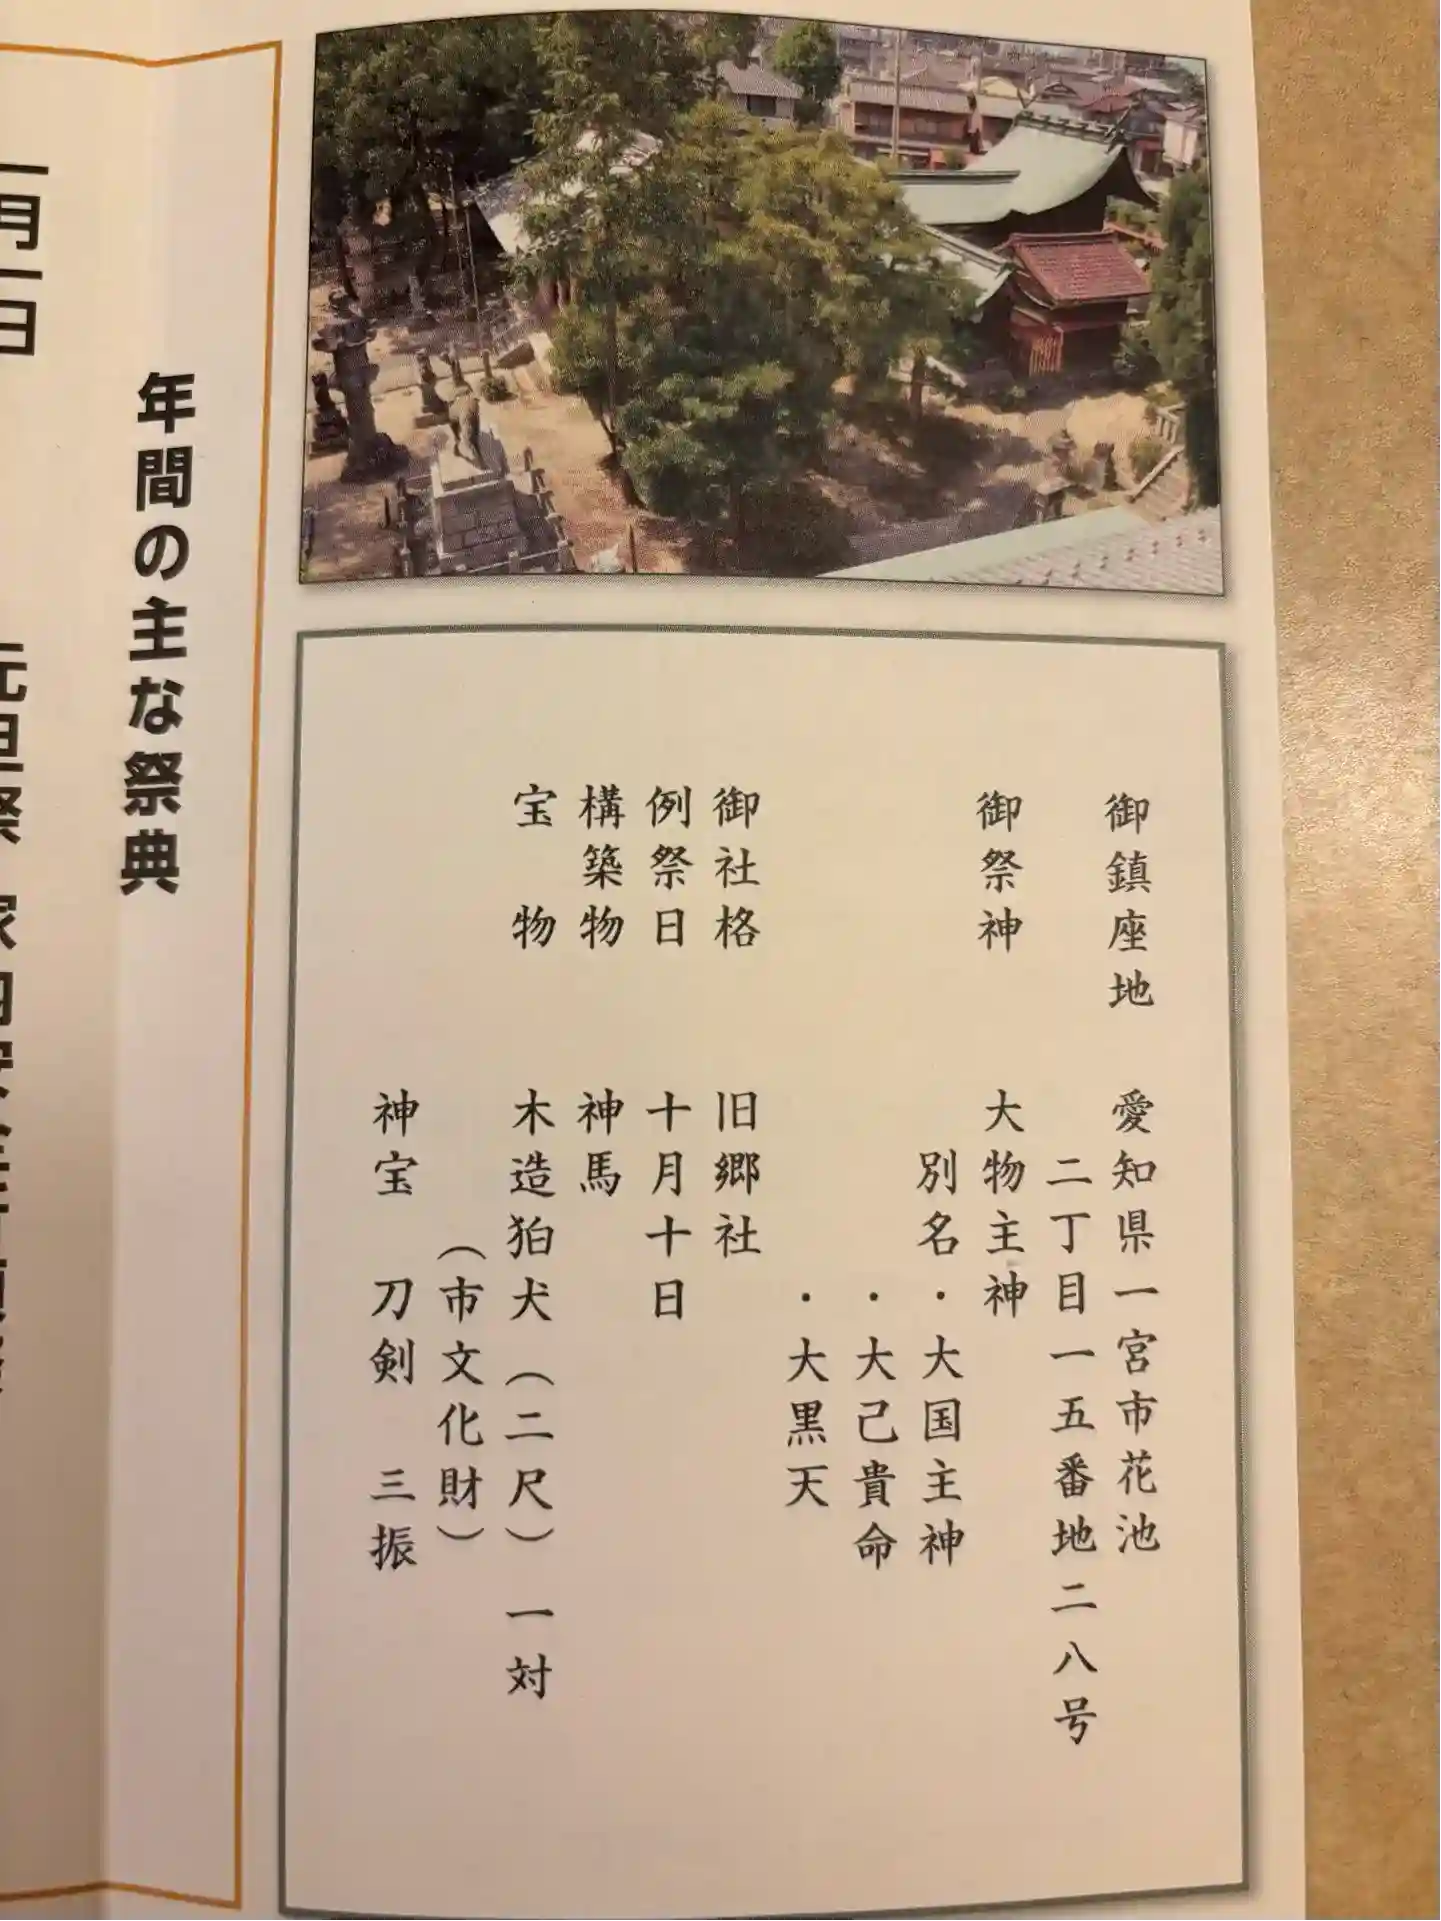 御鎮座地 愛知県一宮市花池
二丁目一五番地二八号
御祭神 大物主神
別名・大国主神
・大己貴命
・大黒天
御社格 旧郷社
例祭日 十月十日
構築物 神馬
宝物 木造狛犬(二尺)一対
(市文化財)
神宝 刀剣 三振
年間の主な祭典
一月一日 元旦祭